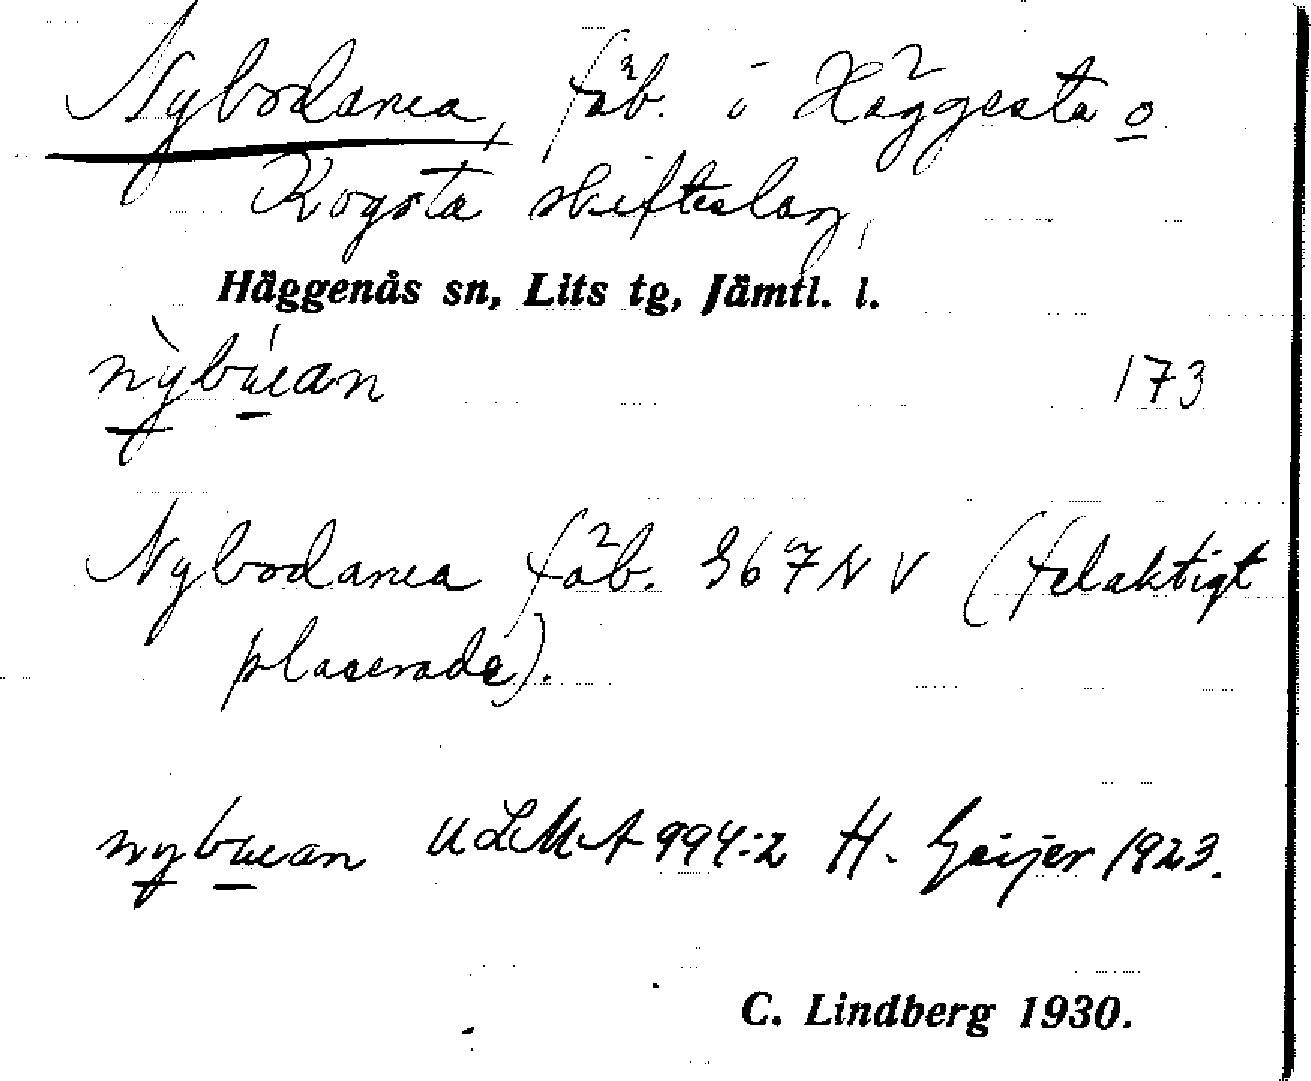 Nybodarna, fäb. i Häggesta o
Kogsta skifteslag,
Häggenås sn, Lits tg, Jämtl. l.
nỳbúan 173
Nybodarna fäb. 367 N V (felaktigt
placerade).
nybuan ULMA 994:2 H. Geijer 1923.
C. Lindberg 1930.